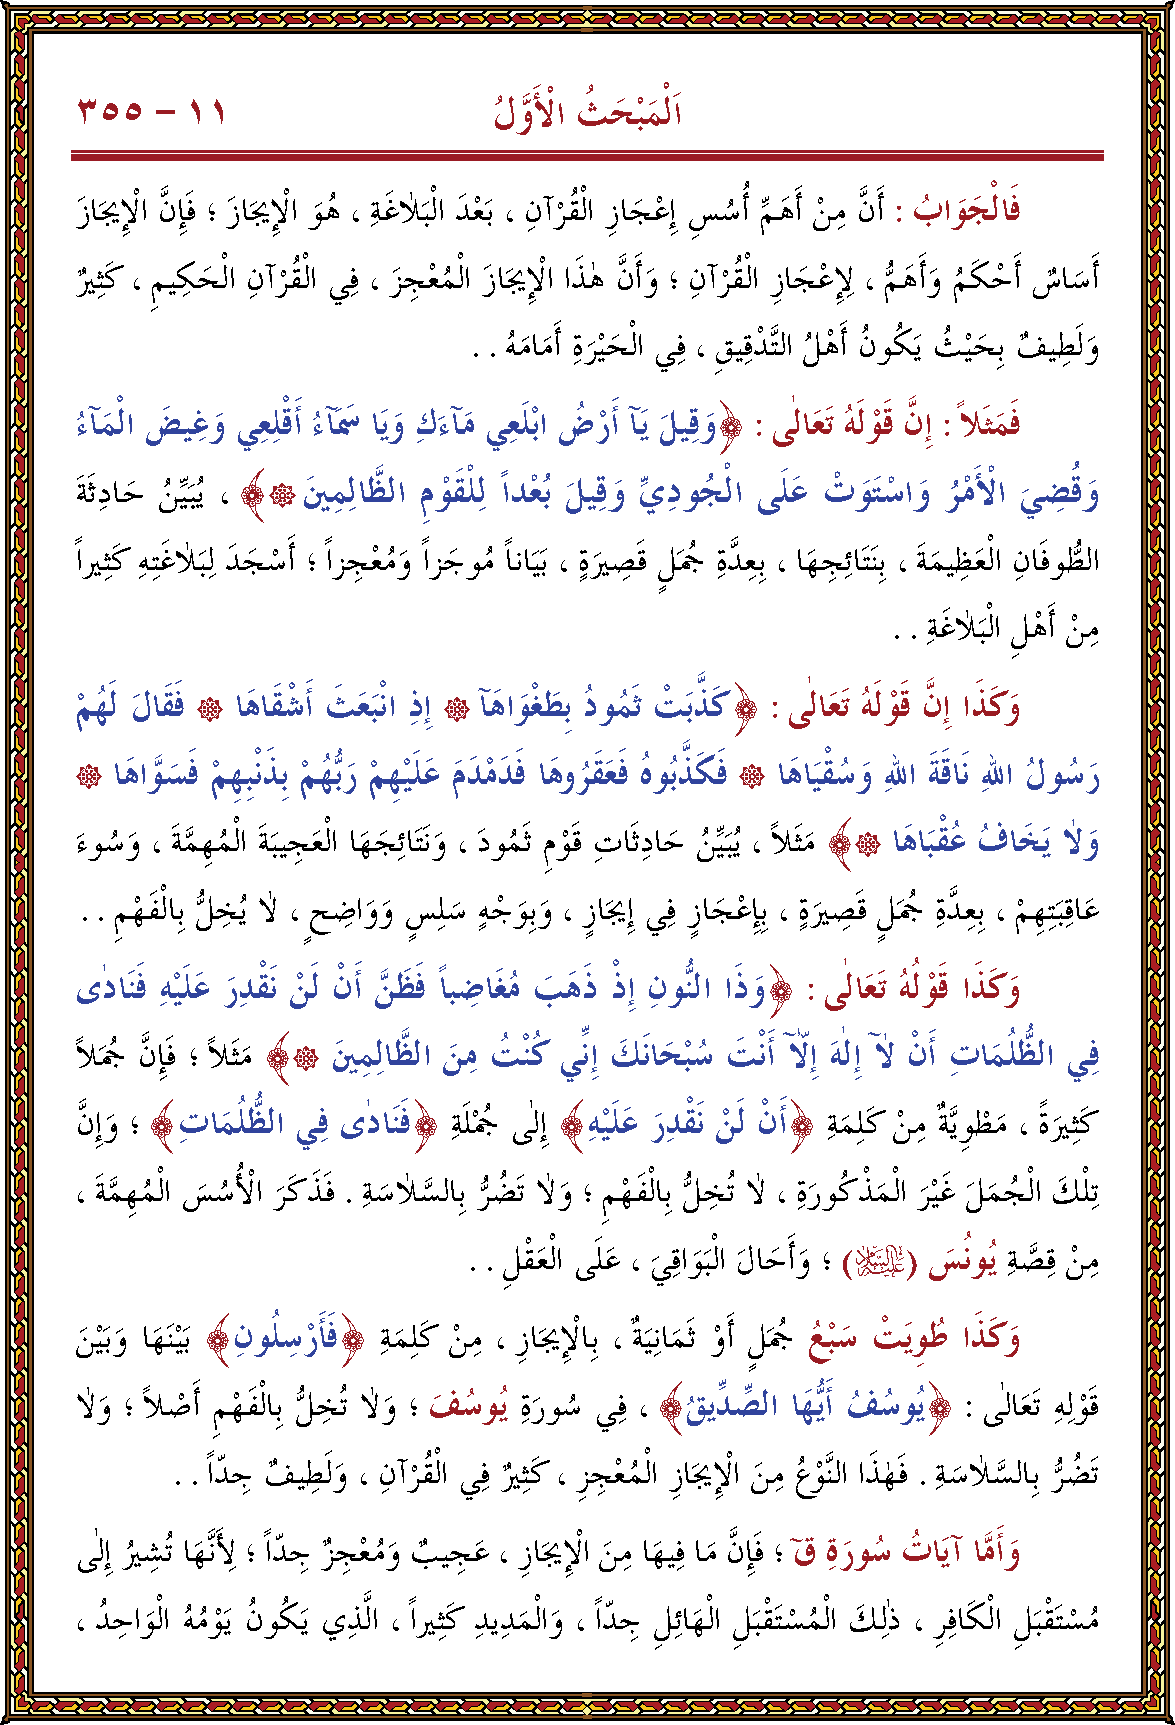 اَلْمَبْحَثُ الْأَوَّلُ ١١ - ٣٥٥
فَالْجَوَابُ : أَنَّ مِنْ أَهَمِّ أُسُسِ إِعْجَازِ الْقُرْآنِ ، بَعْدَ الْبَلَاغَةِ ، هُوَ الْإِيجَازَ ؛ فَإِنَّ الْإِيجَازَ
أَسَاسٌ أَحْكَمُ وَأَهَمُّ ، لِإِعْجَازِ الْقُرْآنِ ؛ وَأَنَّ هٰذَا الْإِيجَازَ الْمُعْجِزَ ، فِي الْقُرْآنِ الْحَكِيمِ ، كَثِيرٌ
وَلَطِيفٌ بِحَيْثُ يَكُونُ أَهْلُ التَّدْقِيقِ ، فِي الْحَيْرَةِ أَمَامَهُ . .
فَمَثَلاً : إِنَّ قَوْلَهُ تَعَالٰى : ﴿وَقِيلَ يَآ أَرْضُ ابْلَعِي مَآءَكِ وَيَا سَمَآءُ أَقْلِعِي وَغِيضَ الْمَآءُ
وَقُضِيَ الْأَمْرُ وَاسْتَوَتْ عَلَى الْجُودِيِّ وَقِيلَ بُعْداً لِلْقَوْمِ الظَّالِمِينَ ۞﴾ ، يُبَيِّنُ حَادِثَةَ
الطُّوفَانِ الْعَظِيمَةَ ، بِنَتَائِجِهَا ، بِعِدَّةِ جُمَلٍ قَصِيرَةٍ ، بَيَاناً مُوجَزاً وَمُعْجِزاً ؛ أَسْجَدَ لِبَلَاغَتِهِ كَثِيراً
مِنْ أَهْلِ الْبَلَاغَةِ . .
وَكَذَا إِنَّ قَوْلَهُ تَعَالٰى : ﴿كَذَّبَتْ ثَمُودُ بِطَغْوَاهَآ ۞ إِذِ انْبَعَثَ أَشْقَاهَا ۞ فَقَالَ لَهُمْ
رَسُولُ اللهِ نَاقَةَ اللهِ وَسُقْيَاهَا ۞ فَكَذَّبُوهُ فَعَقَرُوهَا فَدَمْدَمَ عَلَيْهِمْ رَبُّهُمْ بِذَنْبِهِمْ فَسَوَّاهَا ۞
وَلَا يَخَافُ عُقْبَاهَا ۞﴾ مَثَلاً ، يُبَيِّنُ حَادِثَاتِ قَوْمِ ثَمُودَ ، وَنَتَائِجَهَا الْعَجِيبَةَ الْمُهِمَّةَ ، وَسُوءَ
عَاقِبَتِهِمْ ، بِعِدَّةِ جُمَلٍ قَصِيرَةٍ ، بِإِعْجَازٍ فِي إِيجَازٍ ، وَبِوَجْهٍ سَلِسٍ وَوَاضِحٍ ، لَا يُخِلُّ بِالْفَهْمِ . .
وَكَذَا قَوْلُهُ تَعَالٰى : ﴿وَذَا النُّونِ إِذْ ذَهَبَ مُغَاضِباً فَظَنَّ أَنْ لَنْ نَقْدِرَ عَلَيْهِ فَنَادٰى
فِي الظُّلُمَاتِ أَنْ لَآ إِلٰهَ إِلَّآ أَنْتَ سُبْحَانَكَ إِنِّي كُنْتُ مِنَ الظَّالِمِينَ ۞﴾ مَثَلاً ؛ فَإِنَّ جُمَلاً
كَثِيرَةً ، مَطْوِيَّةٌ مِنْ كَلِمَةِ ﴿أَنْ لَنْ نَقْدِرَ عَلَيْهِ﴾ إِلٰى جُمْلَةِ ﴿فَنَادٰى فِي الظُّلُمَاتِ﴾ ؛ وَإِنَّ
تِلْكَ الْجُمَلَ غَيْرَ الْمَذْكُورَةِ ، لَا تُخِلُّ بِالْفَهْمِ ؛ وَلَا تَضُرُّ بِالسَّلَاسَةِ . فَذَكَرَ الْأُسُسَ الْمُهِمَّةَ ،
مِنْ قِصَّةِ يُونُسَ (عَلَيْهِ السَّلَامُ) ؛ وَأَحَالَ الْبَوَاقِيَ ، عَلَى الْعَقْلِ . .
وَكَذَا طُوِيَتْ سَبْعُ جُمَلٍ أَوْ ثَمَانِيَةٌ ، بِالْإِيجَازِ ، مِنْ كَلِمَةِ ﴿فَأَرْسِلُونِ﴾ بَيْنَهَا وَبَيْنَ
قَوْلِهِ تَعَالٰى : ﴿يُوسُفُ أَيُّهَا الصِّدِّيقُ﴾ ، فِي سُورَةِ يُوسُفَ ؛ وَلَا تُخِلُّ بِالْفَهْمِ أَصْلاً ؛ وَلَا
تَضُرُّ بِالسَّلَاسَةِ . فَهٰذَا النَّوْعُ مِنَ الْإِيجَازِ الْمُعْجِزِ ، كَثِيرٌ فِي الْقُرْآنِ ، وَلَطِيفٌ جِدّاً . .
وَأَمَّا آيَاتُ سُورَةِ قٓ ؛ فَإِنَّ مَا فِيهَا مِنَ الْإِيجَازِ ، عَجِيبٌ وَمُعْجِزٌ جِدّاً ؛ لِأَنَّهَا تُشِيرُ إِلٰى
مُسْتَقْبَلِ الْكَافِرِ ، ذٰلِكَ الْمُسْتَقْبَلِ الْهَائِلِ جِدّاً ، وَالْمَدِيدِ كَثِيراً ، الَّذِي يَكُونُ يَوْمُهُ الْوَاحِدُ ،